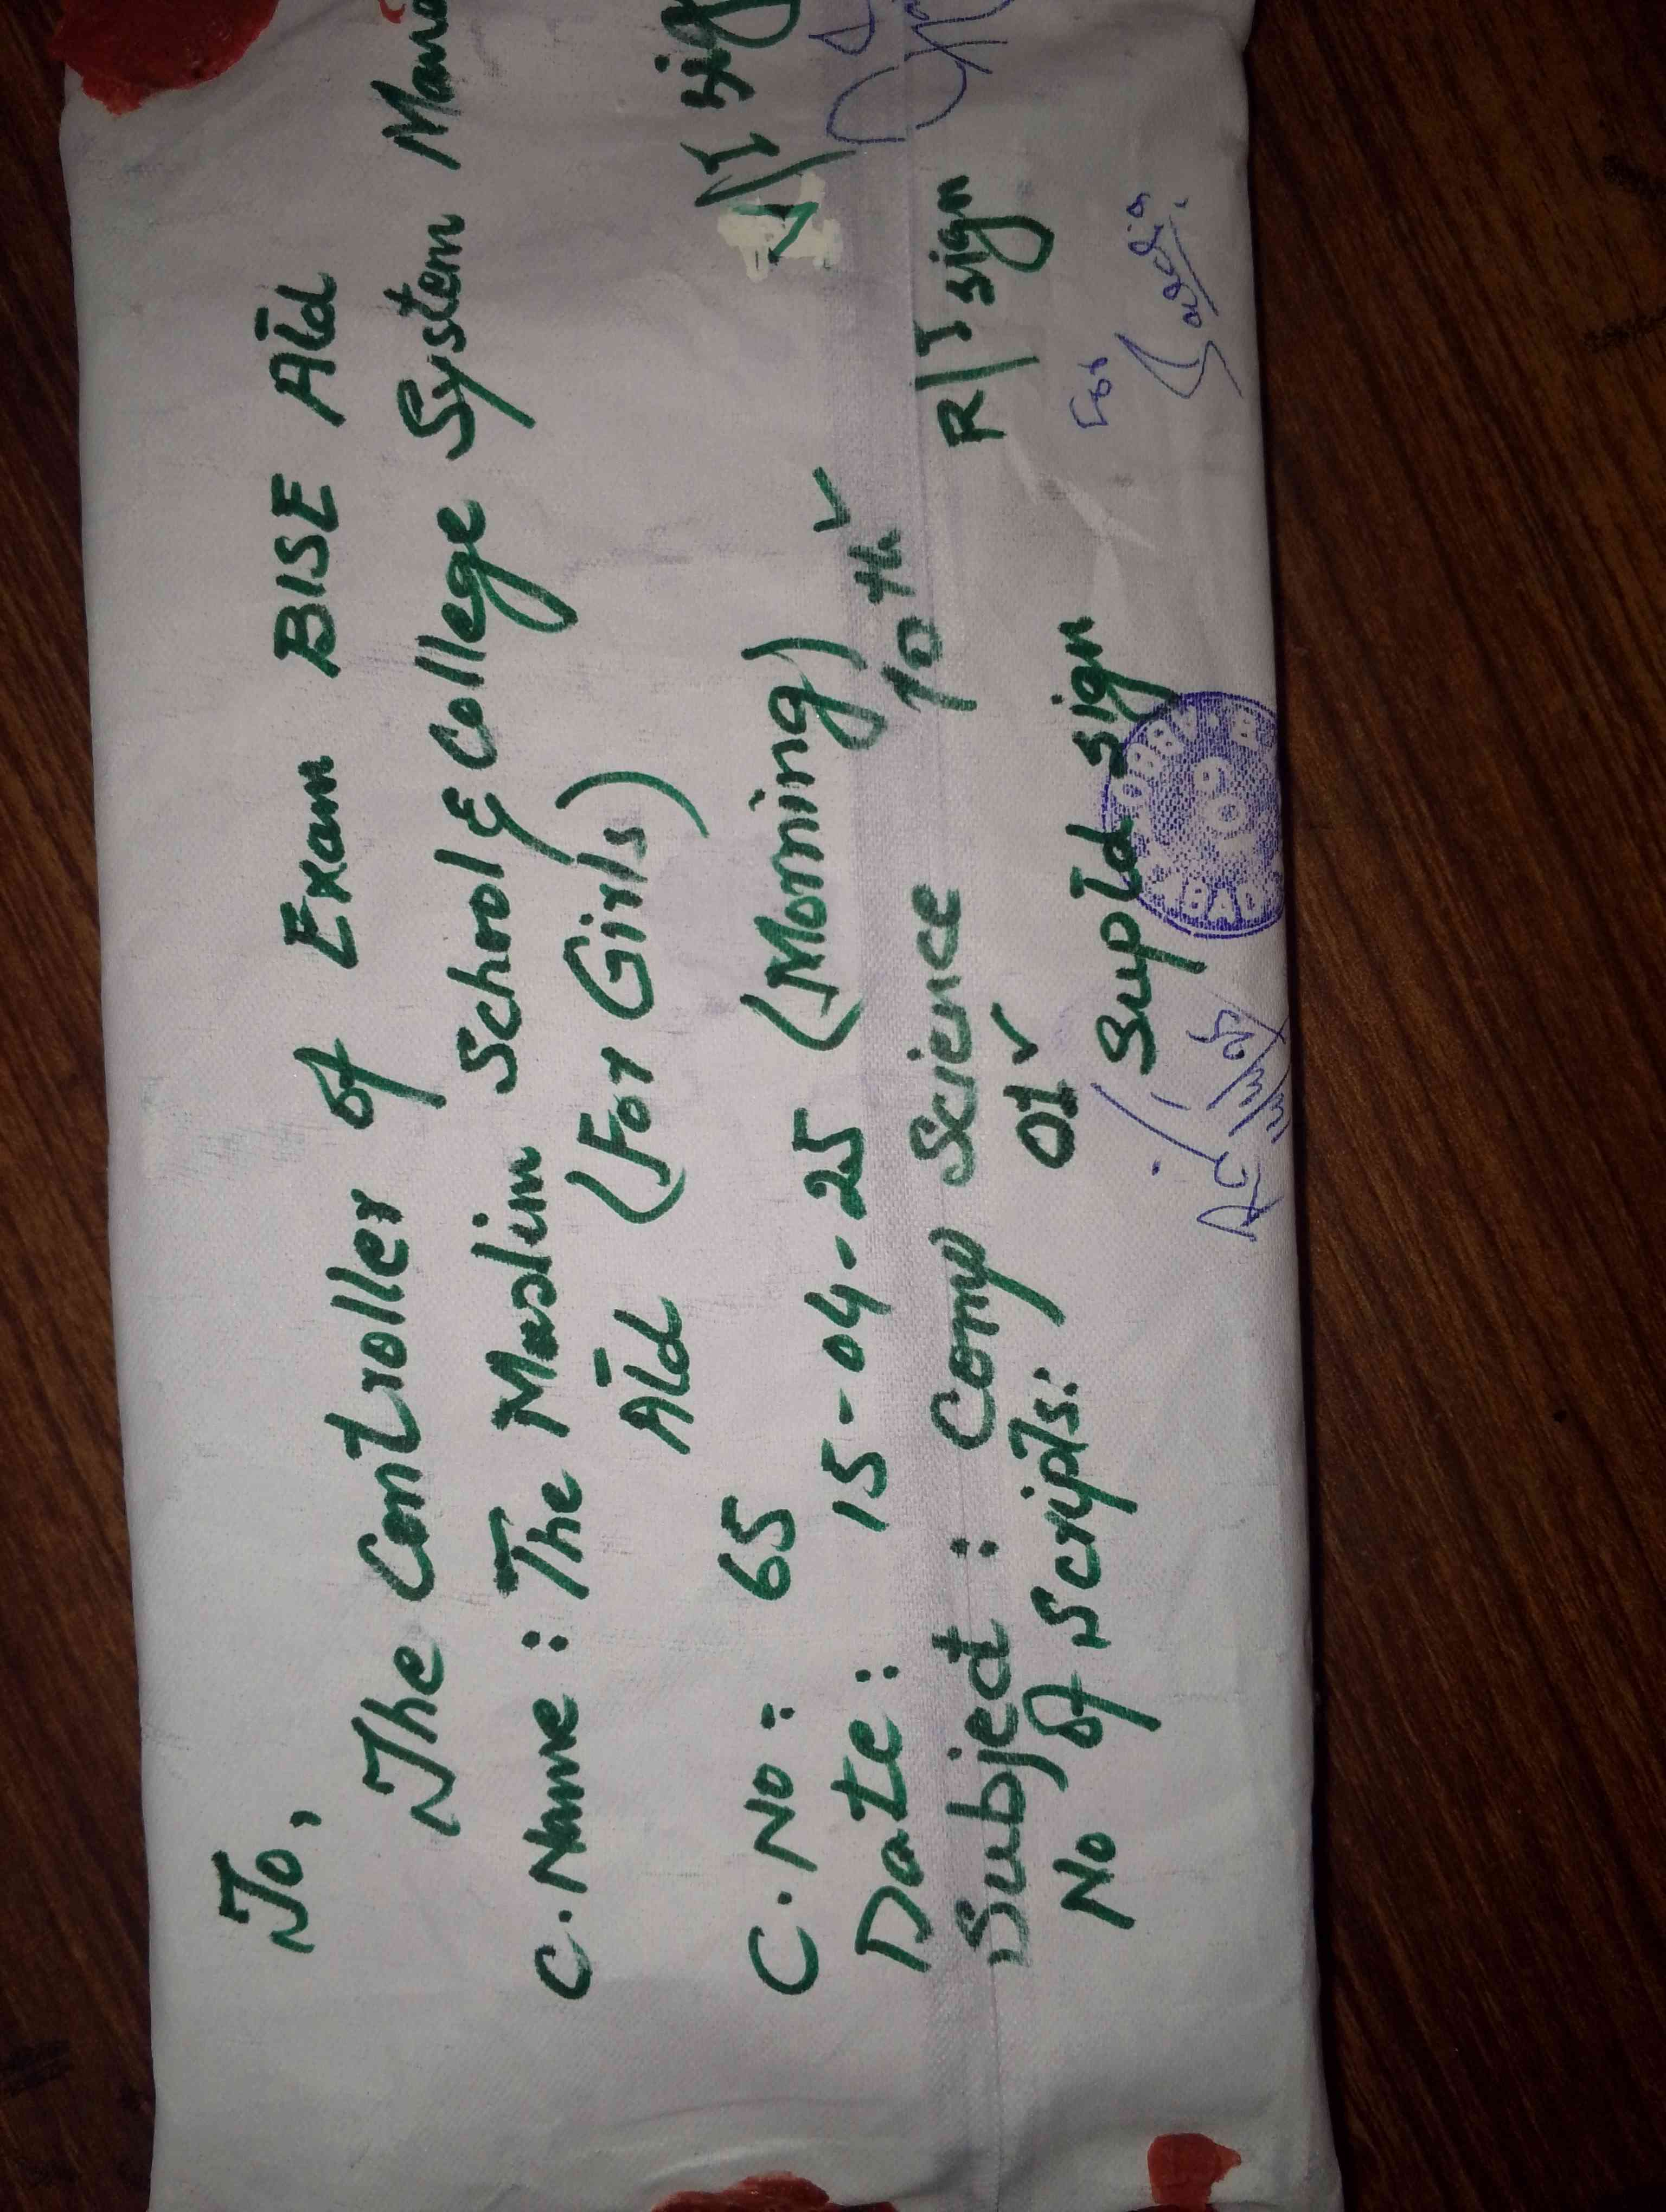 To,
The Controller of Exam BISE ATd
C. Name : The Muslim School & College System
ATd (For Girls)
C. No: 65
Date : 15-04-25 (Morning)
Subject : Comp Science 10th
No of Scripts: 01
R/I sign
For
SupTd sign